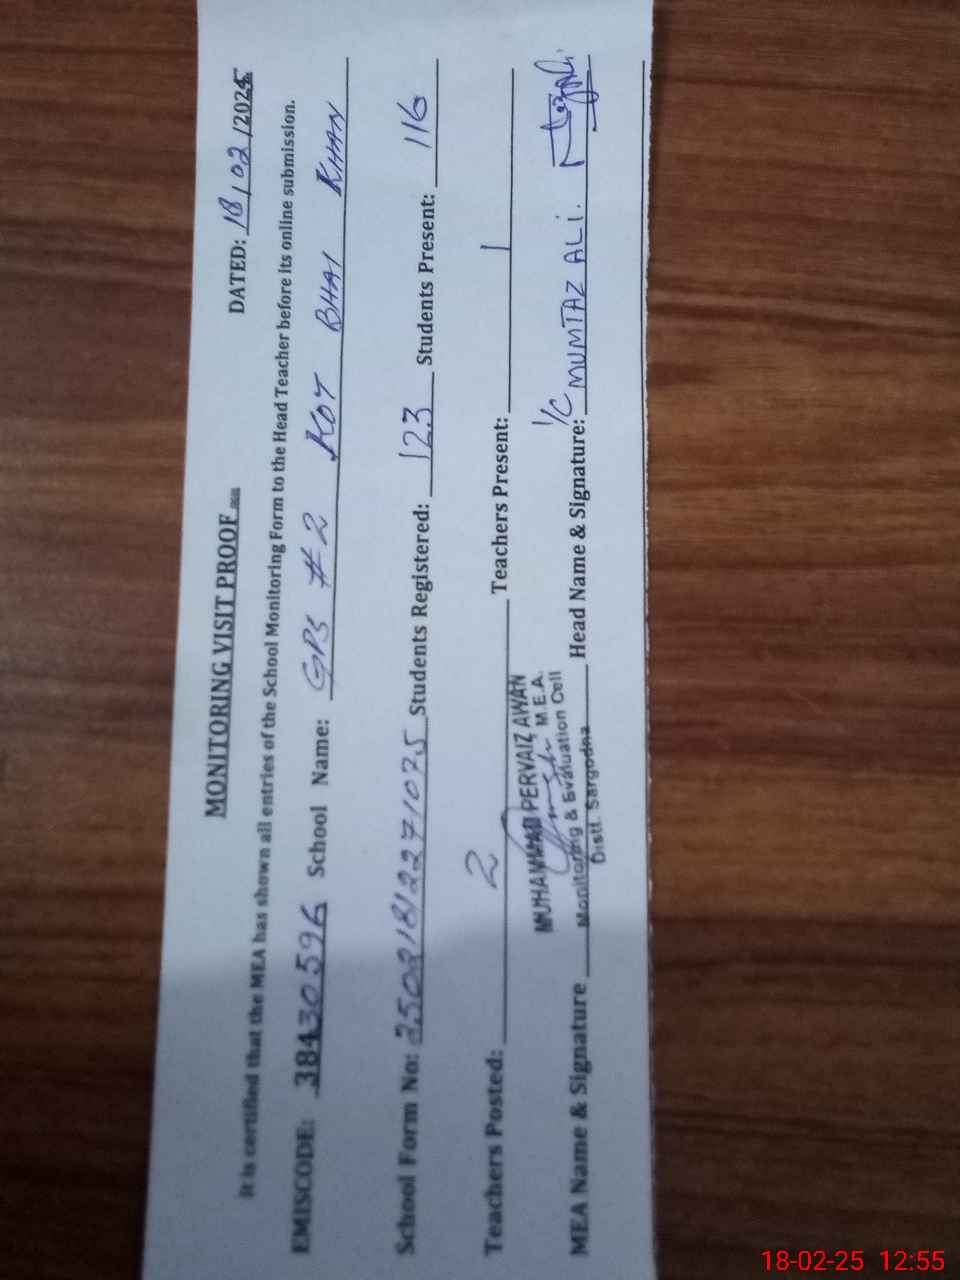 MONITORING VISIT PROOF DATED: 18/02/2025
It is certified that the MEA has shown all entries of the School Monitoring Form to the Head Teacher before its online submission.
EMISCODE: 38430596 School Name: GPS #2 KOT BHAI KHAN
School Form No: 25021812271075 Students Registered: 123 Students Present: 116
Teachers Posted: 2 Teachers Present: 1
MUHAMMAD PERVAIZ AWAN
M.E.A.
MEA Name & Signature Monitoring & Evaluation Cell Head Name & Signature: I/C MUMTAZ ALI.
Distt. Sargodha
18-02-25 12:55